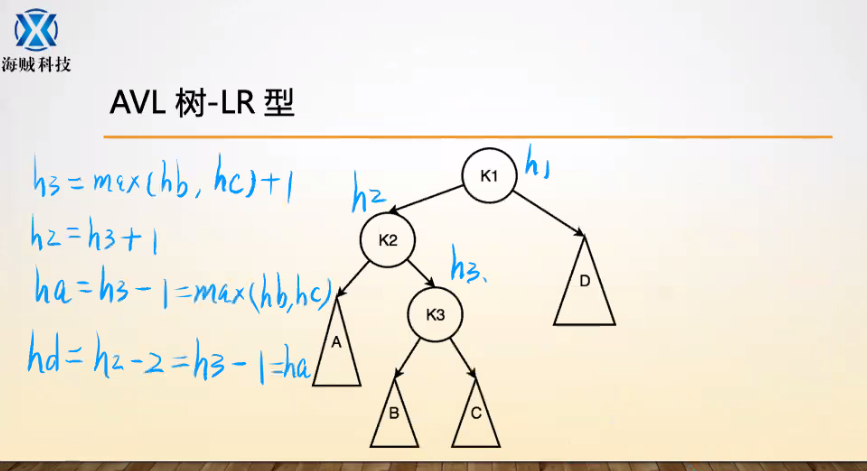 海贼科技
AVL 树-LR 型
h3 = max(hb, hc)+1
h2 = h3+1
ha = h3-1 = max(hb,hc)
hd = h2-2 = h3-1 = ha
K1
h1
h2
K2
h3
K3
D
A
B
C